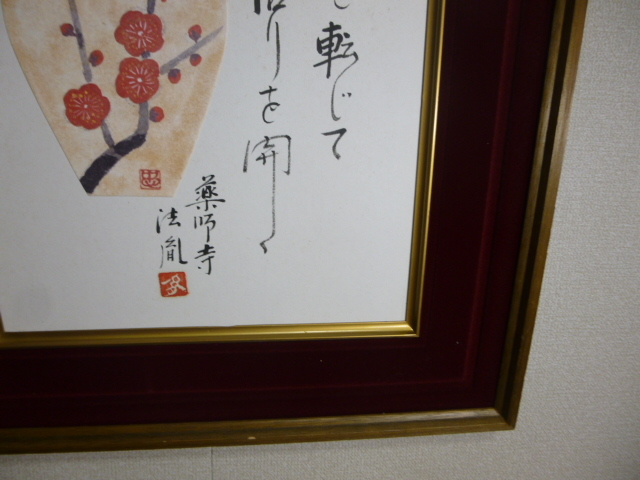 を転じて
悟りを開く
薬師寺
法胤